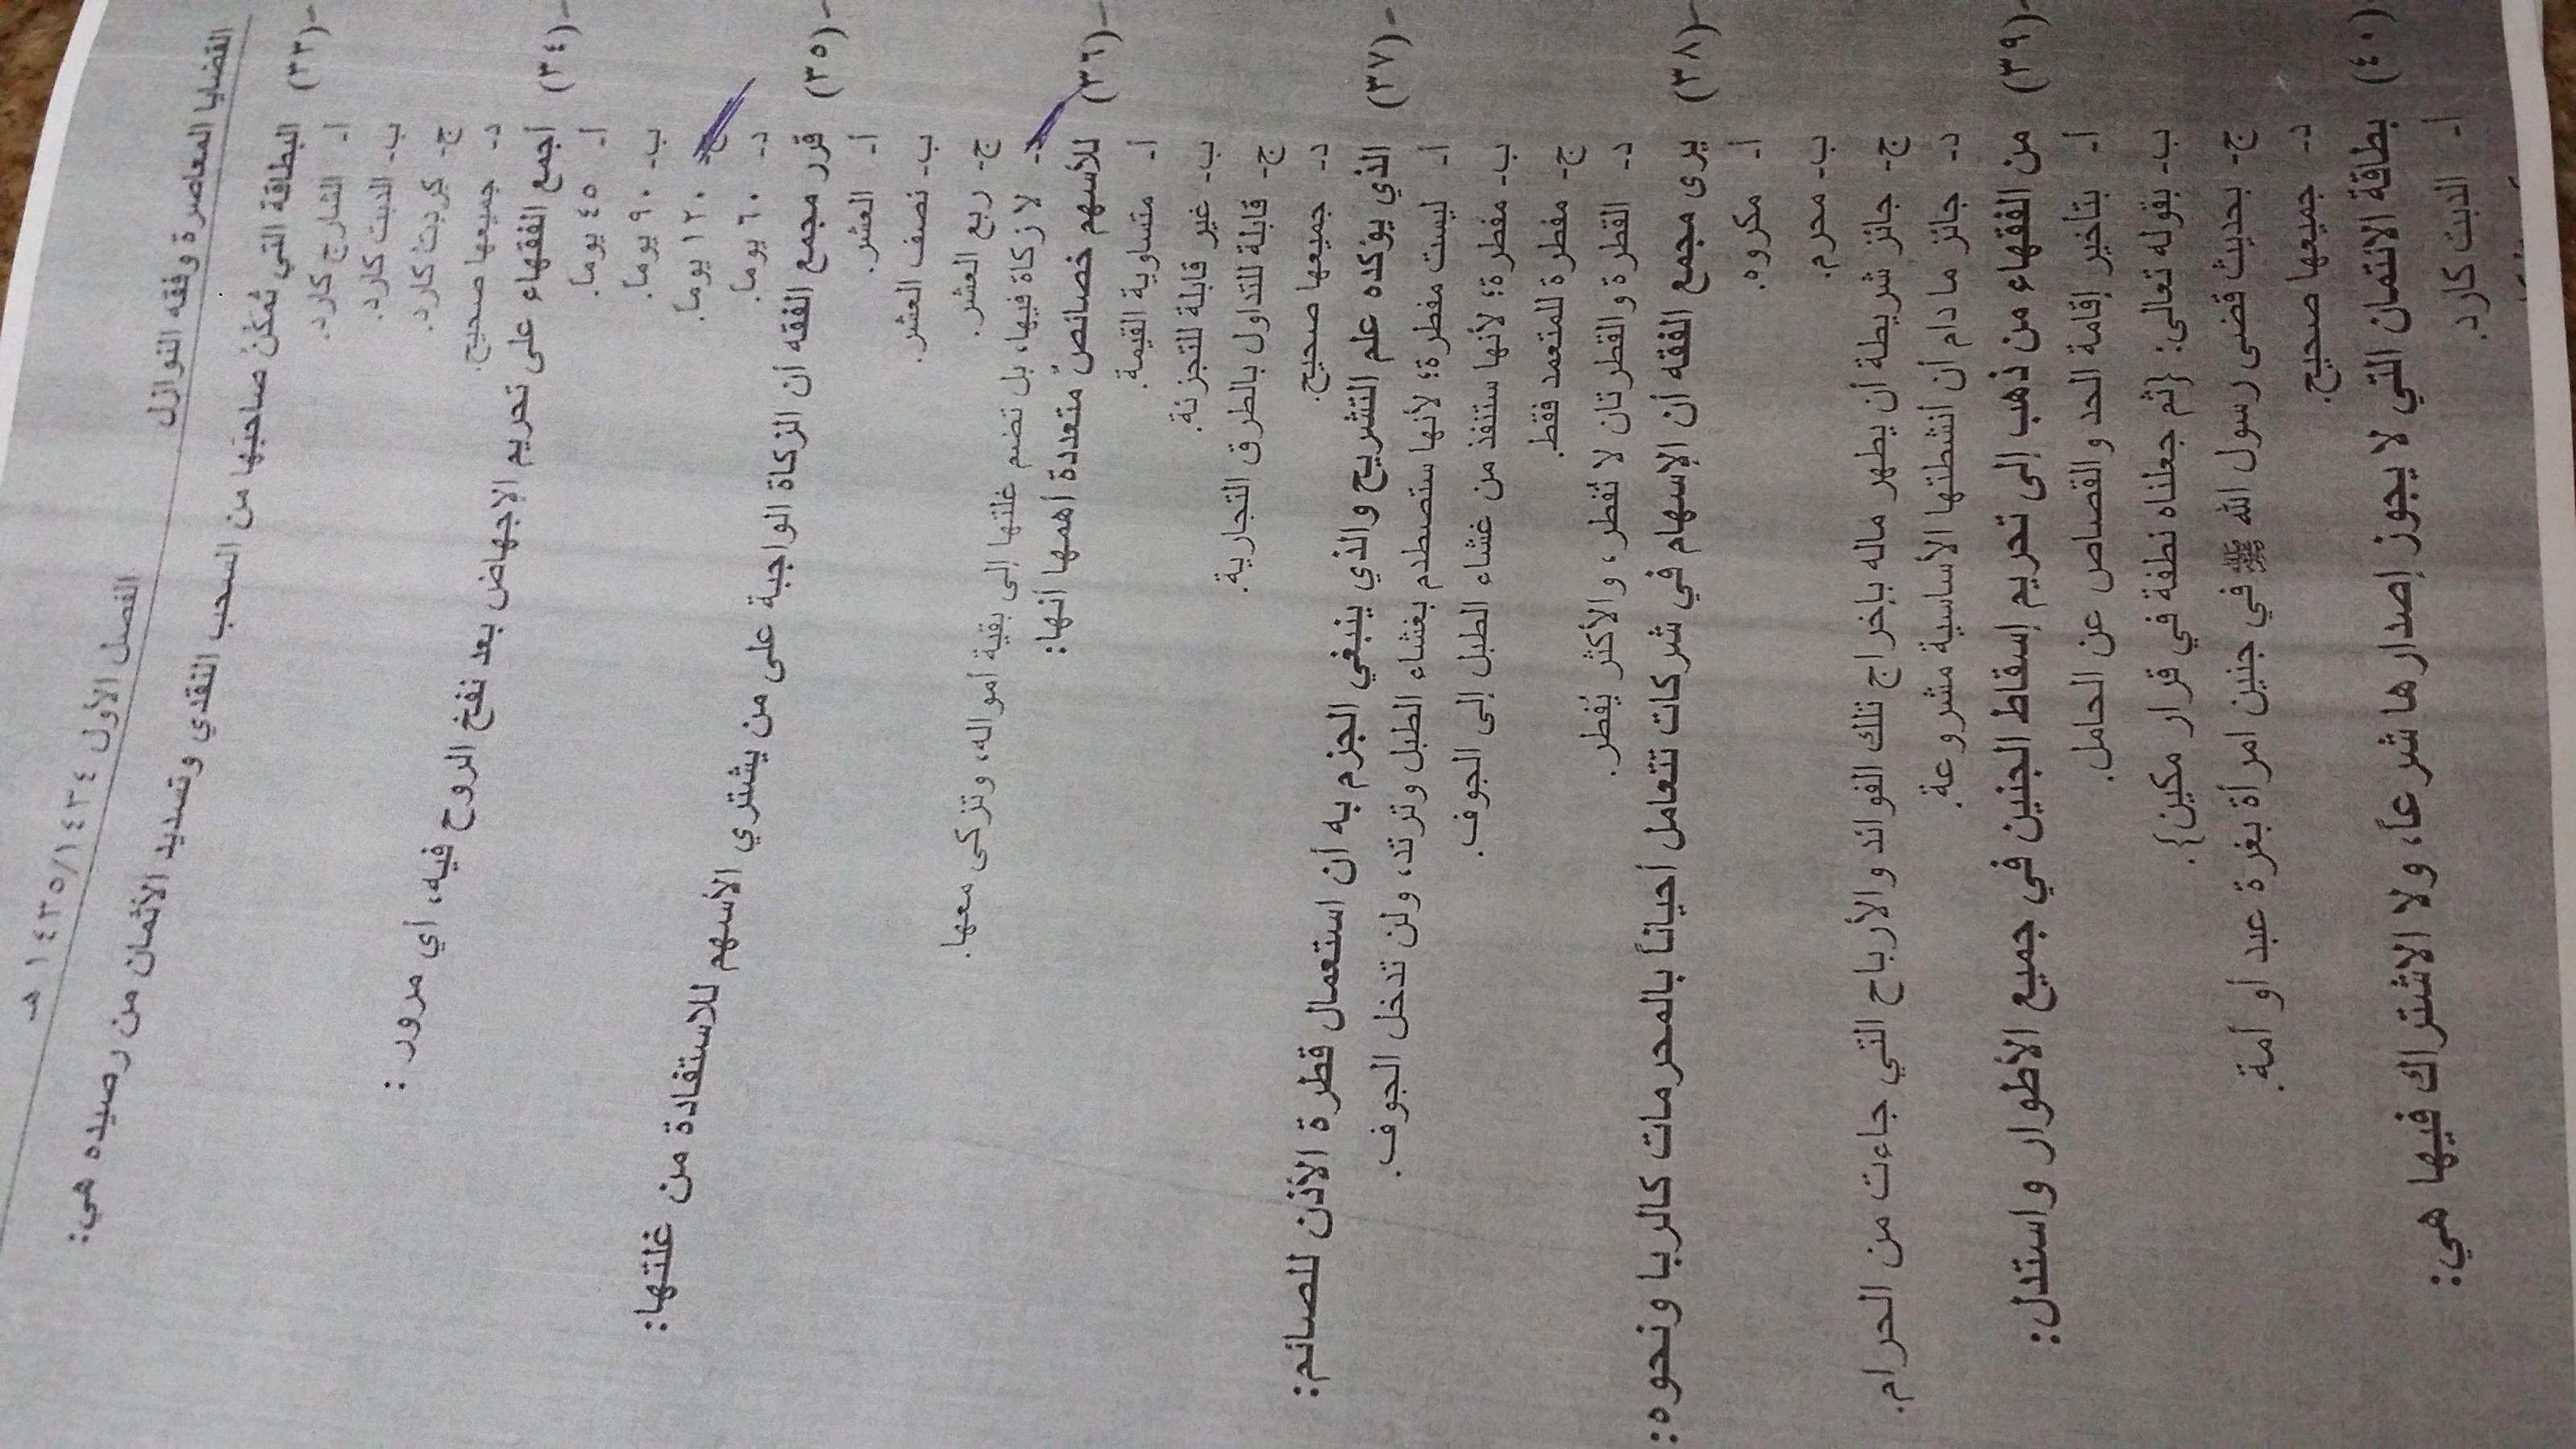 القضايا المعاصرة وفقه النوازل الفصل الأول ١٤٣٥/١٤٣٤ هـ
(٣٣)- البطاقة التي تُمكّنُ صاحبَها من السحب النقدي وتسديد الأثمان من رصيده هي:
أ- الشارج كارد.
ب- الدبت كارد.
ج- كريدت كارد.
د- جميعها صحيح.
(٣٤)- أجمع الفقهاء على تحريم الإجهاض بعد نفخ الروح فيه، أي مرور :
أ- ٤٥ يوماً.
ب- ٩٠ يوماً.
ج- ١٢٠ يوماً.
د- ٦٠ يوماً.
(٣٥)- قرر مجمع الفقه أن الزكاة الواجبة على من يشتري الأسهم للاستفادة من غلتها:
أ- العشر.
ب- نصف العشر.
ج- ربع العشر.
د- لا زكاة فيها، بل تضم غلتها إلى بقية أمواله، وتزكى معها.
(٣٦)- للأسهم خصائصٌ متعددة أهمها أنها:
أ- متساوية القيمة.
ب- غير قابلة للتجزئة.
ج- قابلة للتداول بالطرق التجارية.
د- جميعها صحيح.
(٣٧)- الذي يؤكده علم التشريح والذي ينبغي الجزم به أن استعمال قطرة الأذن للصائم:
أ- ليست مفطرة؛ لأنها ستصطدم بغشاء الطبل وترتد، ولن تدخل الجوف.
ب- مفطرة؛ لأنها ستنفذ من غشاء الطبل إلى الجوف.
ج- مفطرة للمتعمد فقط.
د- القطرة والقطرتان لا تُفطر، والأكثر يُفطر.
(٣٨)- يرى مجمع الفقه أن الإسهام في شركات تتعامل أحياناً بالمحرمات كالربا ونحوه:
أ- مكروه.
ب- محرم.
ج- جائز شريطة أن يطهر ماله بإخراج تلك الفوائد والأرباح التي جاءت من الحرام.
د- جائز ما دام أن أنشطتها الأساسية مشروعة.
(٣٩)- من الفقهاء من ذهب إلى تحريم إسقاط الجنين في جميع الأطوار واستدل:
أ- بتأخير إقامة الحد والقصاص عن الحامل.
ب- بقوله تعالى: {ثم جعلناه نطفة في قرار مكين}.
ج- بحديث قضى رسول الله ﷺ في جنين امرأة بغرة عبد أو أمة.
د- جميعها صحيح.
(٤٠)- بطاقة الائتمان التي لا يجوز إصدارها شرعاً، ولا الاشتراك فيها هي:
أ- الدبت كارد.